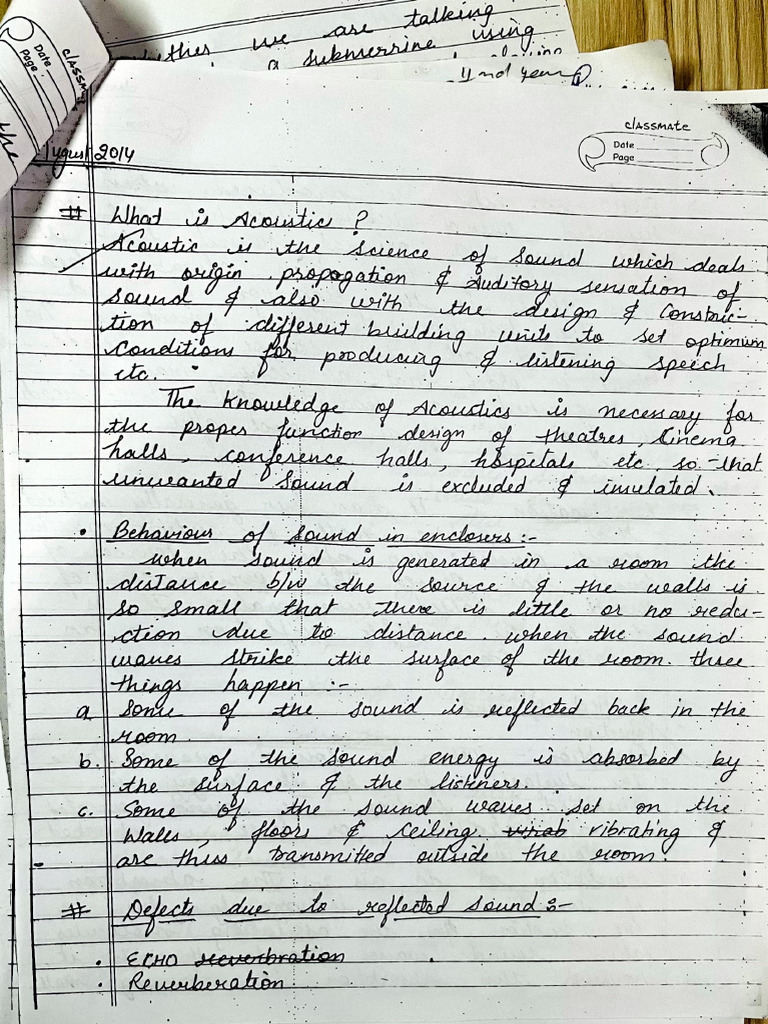 we are talking
a submerrine using
IInd year
classmate
Date
Page
classmate
Date
Page
the
August 2014
# What is Acoustic ?
Acoustic is the science of sound which deals
with origin propogation & Auditory sensation of
sound & also with the design & Construc-
tion of different building units to set optimum
Conditions for producing & listening speech
etc.
The Knowledge of Acoustics is necessary for
the proper function design of theatres, Cinema
halls, conference halls, hospitals etc so that
unwanted sound is excluded & insulated.
• Behaviour of sound in enclosers :-
when sound is generated in a room the
distance b/w the source & the walls is
so small that there is little or no redu-
ction due to distance. when the sound
waves strike the surface of the room. three
things happen :-
a. Some of the sound is reflected back in the
room.
b. Some of the sound energy is absorbed by
the surface & the listners.
c. Some of the sound waves set on the
Walls, floors & ceiling. vibrating &
are thiss transmitted outside the room.
# Defects due to reflected sound :-
• ECHO reverbration
• Reverberation